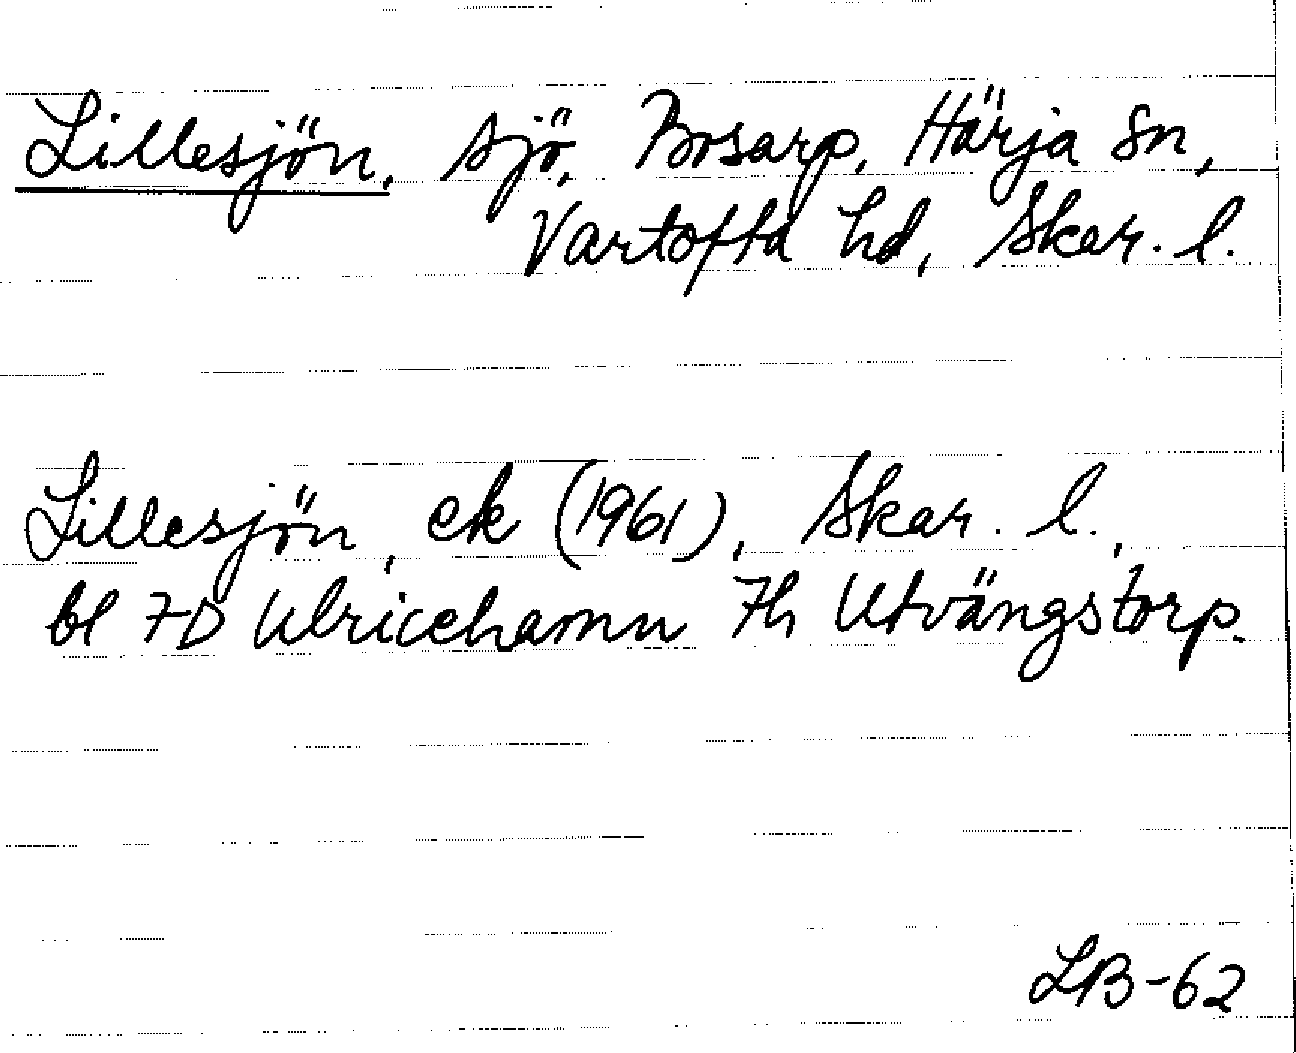 Lillesjön, sjö, Bosarp, Härja sn,
Vartofta hd, Skar. l.
Lillesjön, ek (1961), Skar. l.,
bl 7D Ulricehamn 7h Utvängstorp.
LB-62